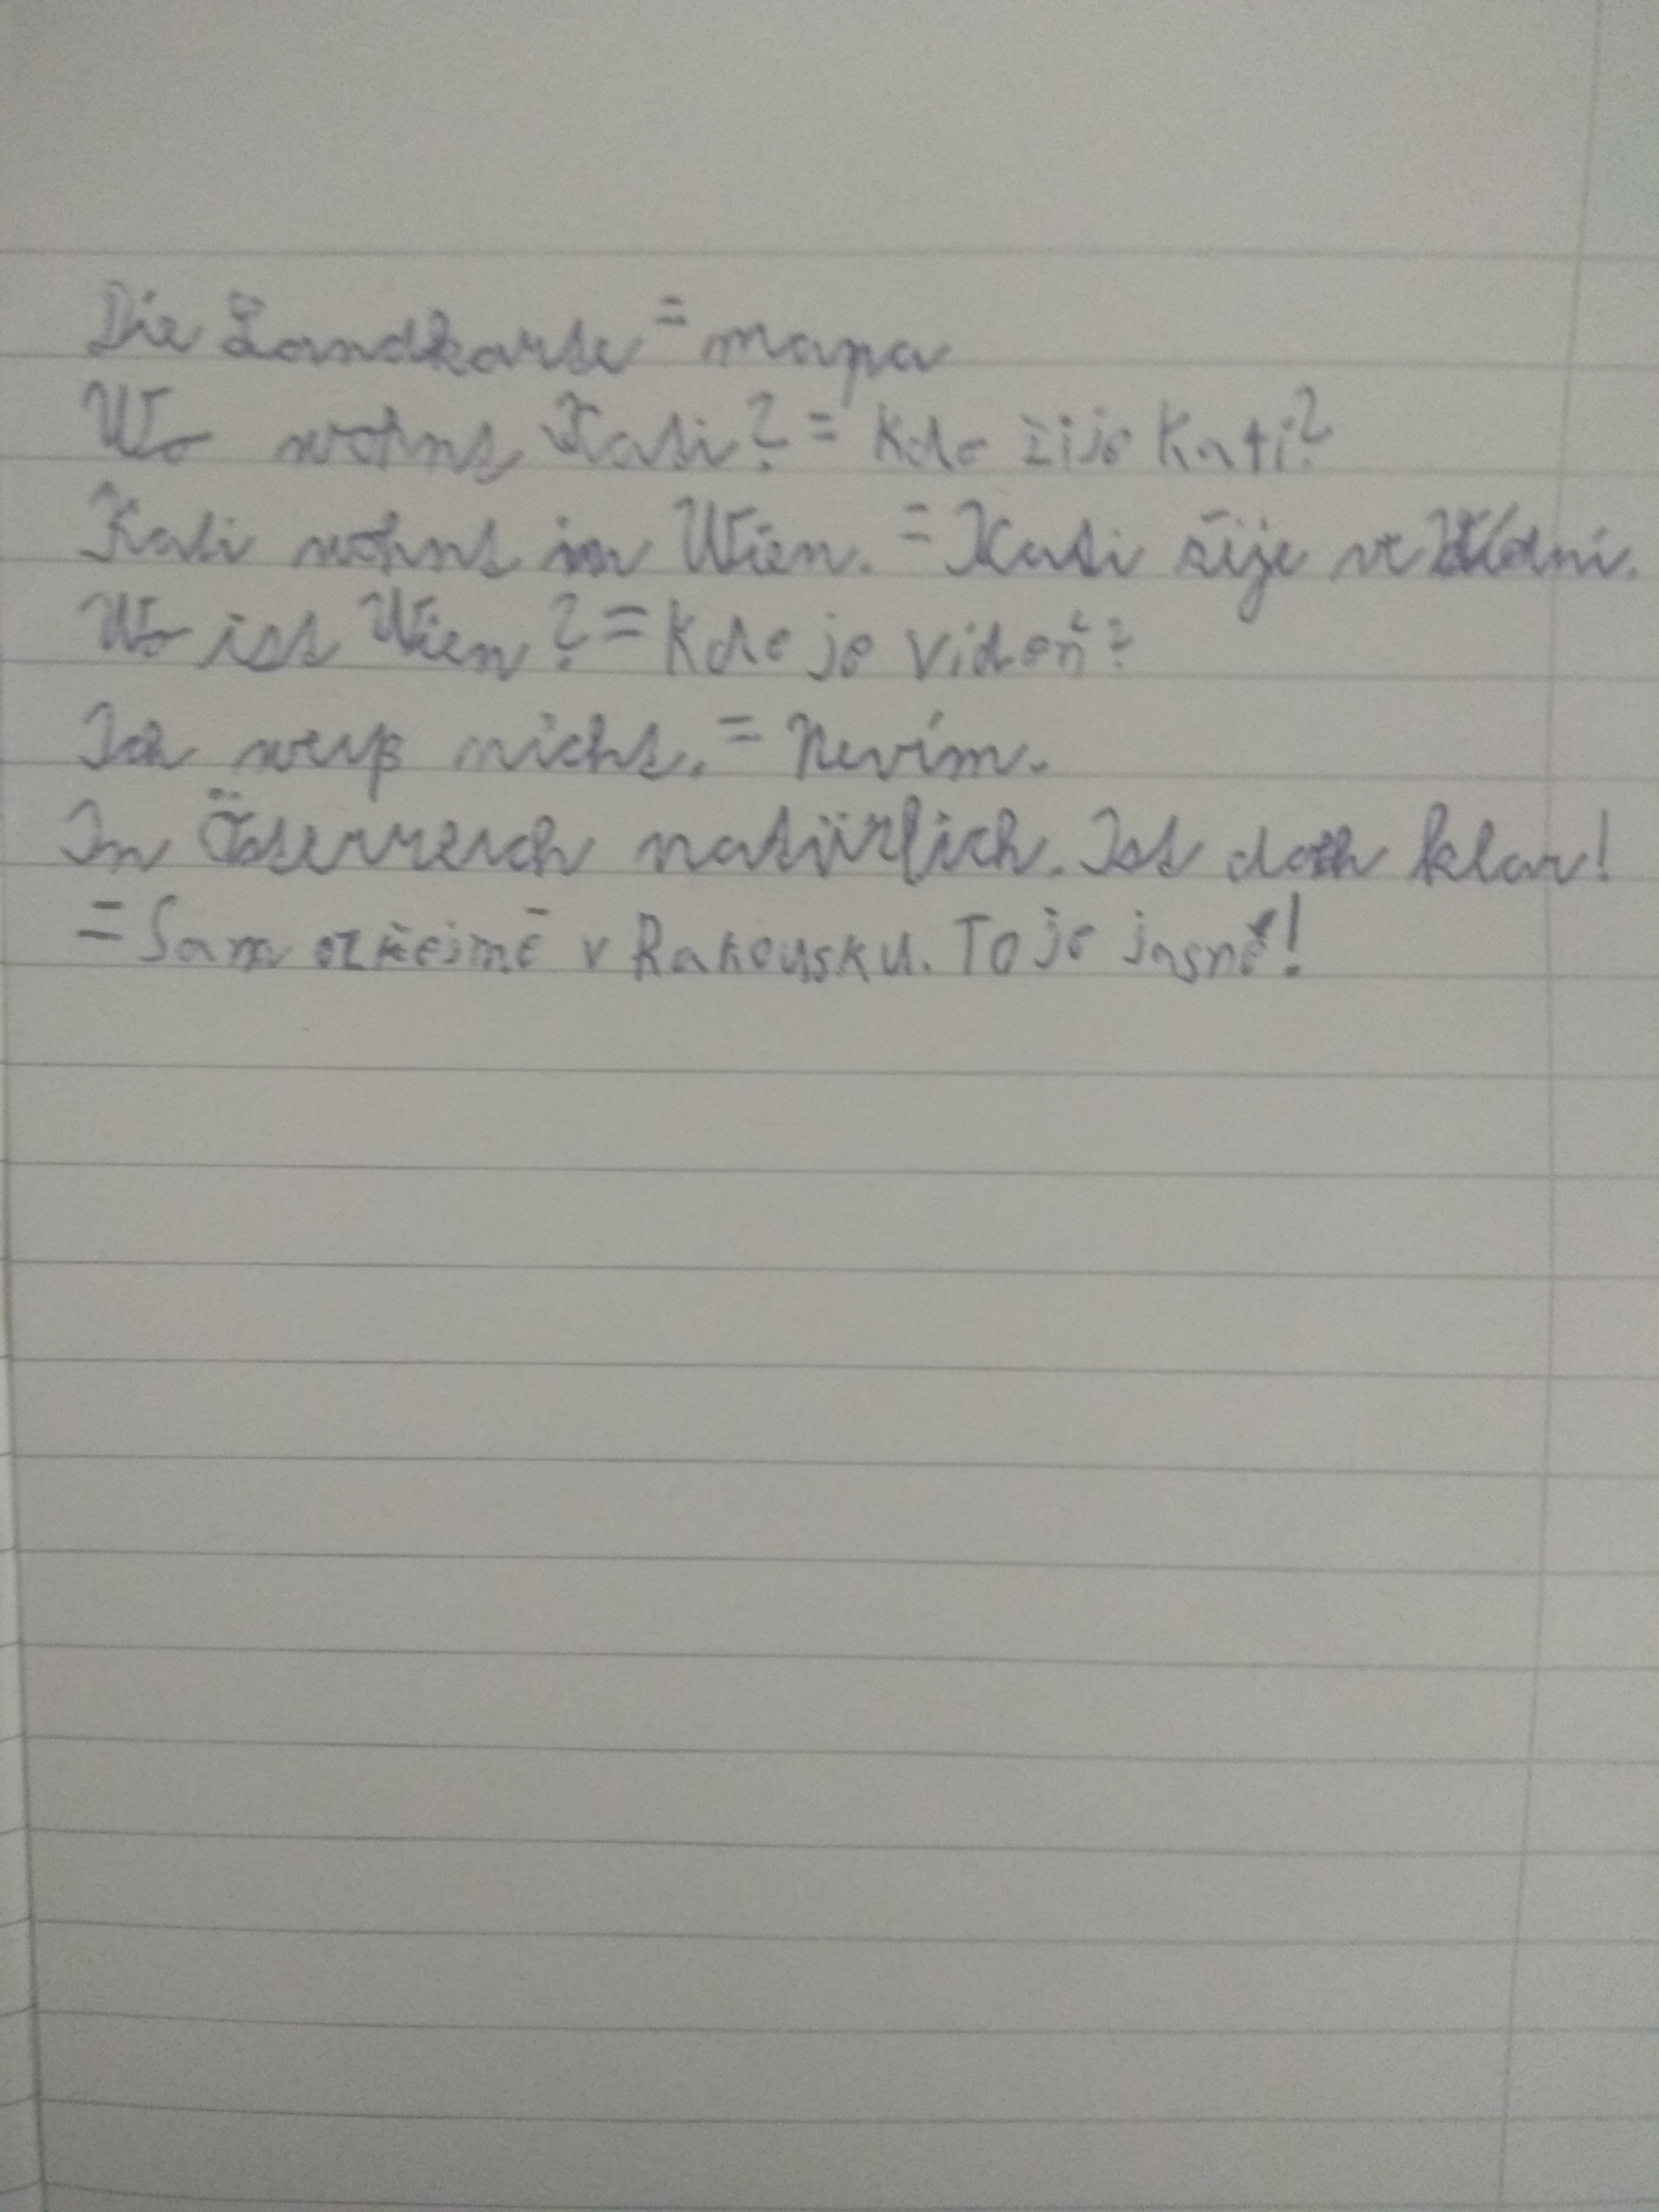 Die Landkarte = mapa
Wo wohnt Kati? = Kde žije Kati?
Kati wohnt in Wien. = Kati žije ve Vídni.
Wo ist Wien? = Kde je Videň?
Ich weiß nicht. = Nevím.
In Österreich natürlich. Ist doch klar!
= Samozřejmě v Rakousku. To je jasné!